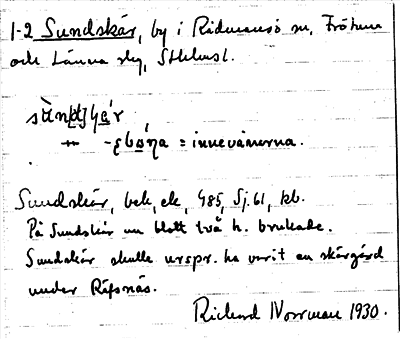 1-2 Sundskär, by i Rådmansö sn, Frötuna
och Länna slg, Sthlmsl.
= innevånarna.
Sundskär, bek, ek, 485, Sj. 61, kb.
På Sundskär nu blott två h. brukade.
Sundskär skulle urspr. ha varit en skärgård
under Räfsnäs.
Richard Norrman 1930.